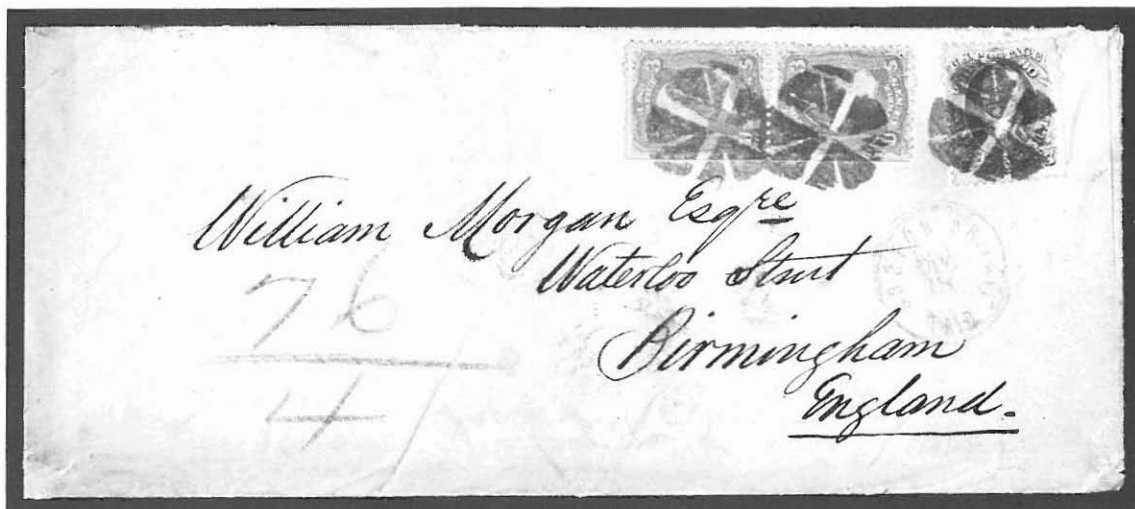 William Morgan Esqre
Waterloo Street
Birmingham
England.
76
4